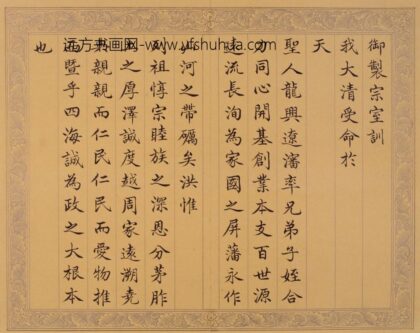 远方书画网-www.yfshuhua.com
御製宗室訓
我大清受命於
天
聖人龍興遼瀋率兄弟子姪合
力同心開基創業本支百世源
遠流長洵為家國之屏藩永作
河之帶礪矣洪惟
列祖惇宗睦族之深恩分茅胙
土之厚澤誠度越周家遠溯堯
親親而仁民仁民而愛物推
而暨乎四海誠為政之大根本
也